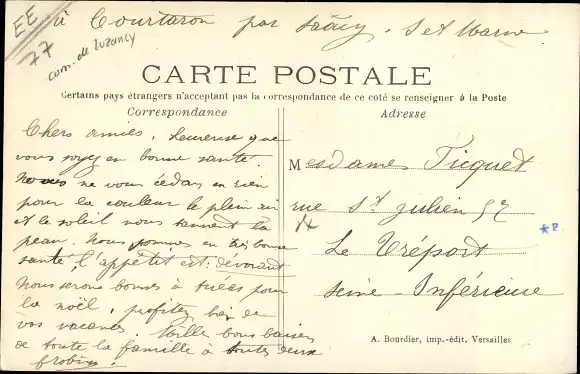 à Courtaron par Saâcy. S et Marne
EE
77
com. de Luzancy
CARTE POSTALE
Certains pays étrangers n'acceptant pas la correspondance de ce coté se renseigner à la Poste
Correspondance
Chers amies, heureuse que
vous soyez en bonne santé.
nous ne vous cédons en rien
pour la couleur le plein air
et le soleil nous tannent la
peau. Nous sommes en très bonne
santé, l'appétit est: dévorant
Nous serons bonnes à tuées pour
la noël, profitez bien de
vos vacances. Mille bons baisers
de toute la famille à toutes deux
Adresse
Mesdames Ticquet
rue St Julien 57
Le Tréport
Seine-Inférieure
*P.
A. Bourdier, imp.-édit. Versailles